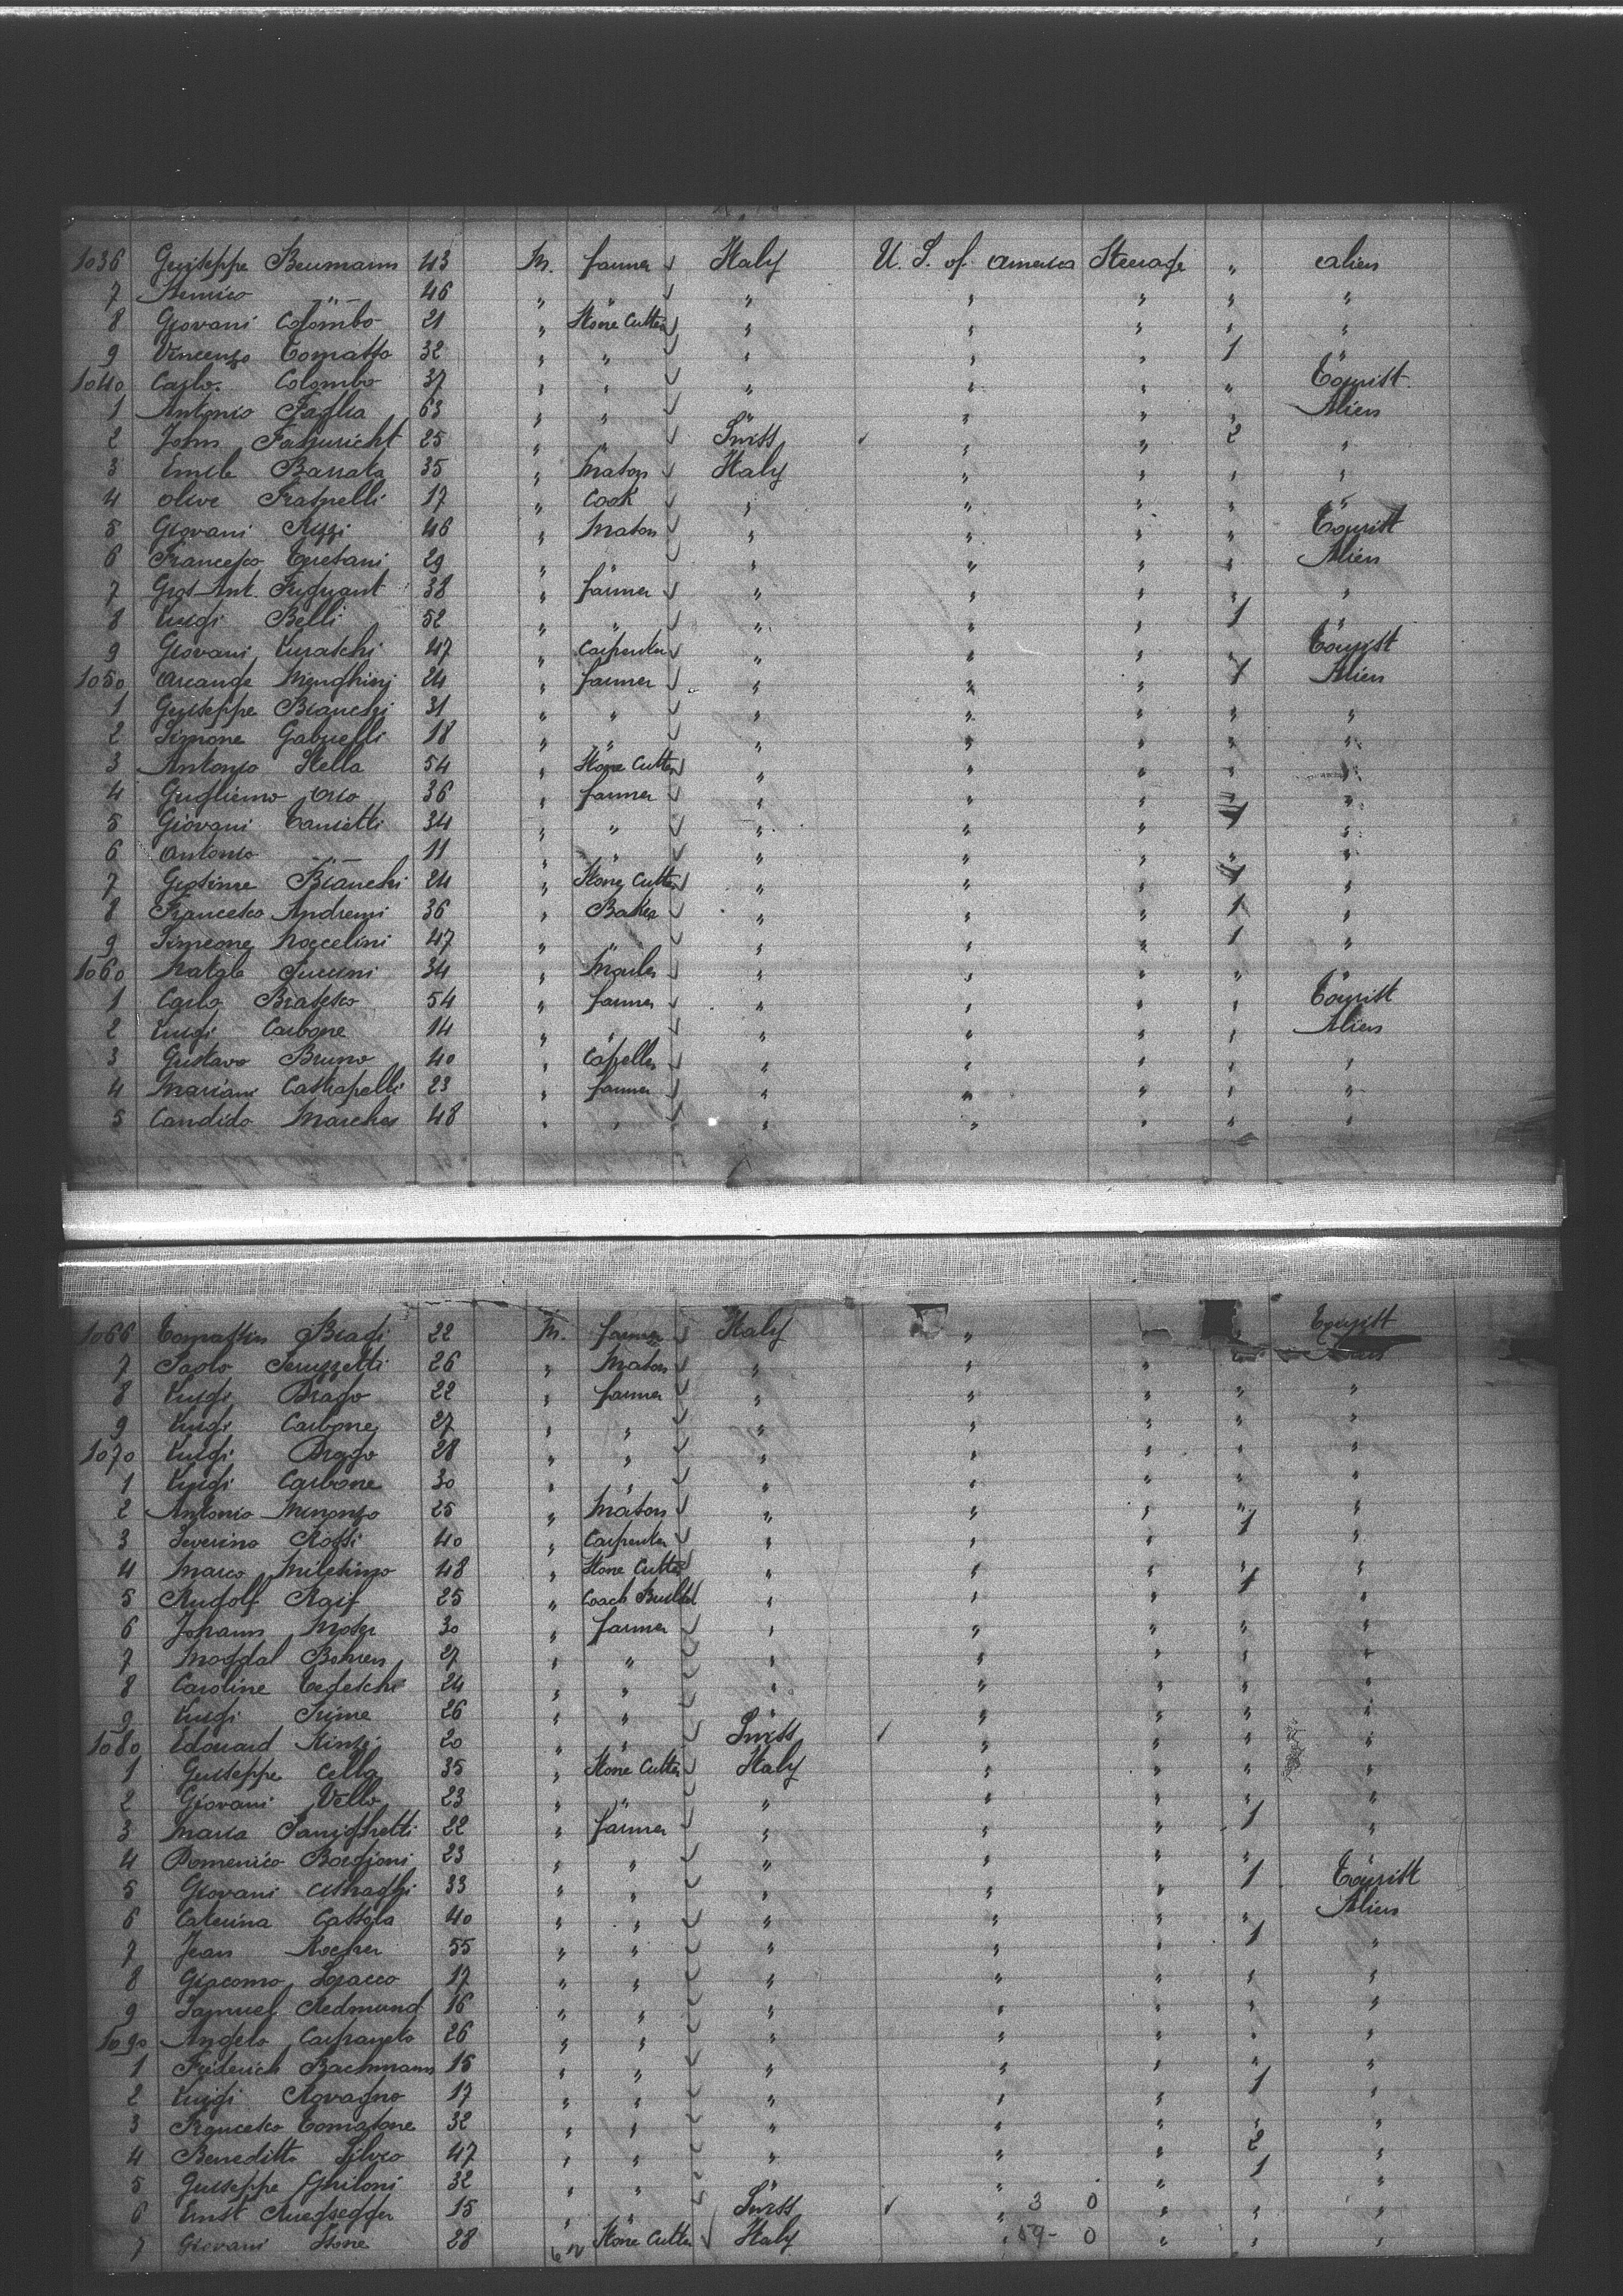 1036 Guiseppe Beumann 43 M. farmer Italy U. S. of America Steerage " alien
7 Henrico " 46 " " " " " " "
8 Giovani Colombo 21 " Stone Cutter " " " " "
9 Vincenzo Tomasso 32 " " " " " 1 "
1040 Carlo Colombo 37 " " " " " " Tourist
1 Antonio Faglia 63 " " " " " " Alien
2 John 25 " " Swiss " " 2 "
3 Emile Barrata 35 " Mason Italy " " " "
4 Olive Fratnelli 17 " Cook " " " " "
5 Giovani Rizzi 46 " Mason " " " " Tourist
6 Francesco 29 " " " " " " Alien
7 Gios Ant. 38 " farmer " " " " "
8 Luigi Belli 52 " " " " " 1 "
9 Giovani Luraschi 47 " Carpenter " " " " Tourist
1050 Arcange Menghini 24 " farmer " " " 1 Alien
1 Guiseppe Biancszi 31 " " " " " " "
2 Simone Gabrielli 18 " " " " " " "
3 Antonio Stella 54 " Stone Cutter " " " " "
4 Guglielmo Orio 36 " farmer " " " " "
5 Giovani Cancetti 34 " " " " " 1 "
6 Antonio " 11 " " " " " " "
7 Bianchi 24 " Stone Cutter " " " 1 "
8 Francesco Andreini 36 " Baker " " " 1 "
9 Simeone Noccelini 47 " " " " " 1 "
1060 Natale 34 " " " " " "
1 Carlo Bratesco 54 " farmer " " " " Tourist
2 Luigi Carbone 14 " " " " " " Alien
3 Gustavo Bruno 40 " Capeller " " " " "
4 Mariani Castrapelli 23 " farmer " " " " "
5 Candido Marches 48 " " " " " " "
1066 Biagi 22 M. farmer Italy " Tourist
7 Paolo Peruzzetti 26 " Mason " " " "
8 Luigi Drago 22 " farmer " " " " "
9 Luigi Carbone 27 " " " " " " "
1070 Luigi Drago 28 " " " " " " "
1 Luigi Carbone 30 " " " " " " "
2 Antonio Menonzo 25 " Mason " " " " "
3 Severino Rossi 40 " Carpenter " " " 1 "
4 Marco 48 " Stone Cutter " " " " "
5 Rudolf Raif 25 " Coach Builder " " " 1 "
6 Johann Moser 30 " farmer " " " " "
7 Magdal Bohren 27 " " " " " " "
8 Caroline Tedeschi 24 " " " " " " "
9 Luigi Prime 26 " " " " " " "
1080 Edouard Kinzi 20 " " Swiss " " " "
1 Guiseppe Cella 35 " Stone Cutter Italy " " " "
2 Giovani Vello 23 " " " " " " "
3 Maria 22 " farmer " " " 1 "
4 Domenico Borgioni 23 " " " " " " "
5 Giovani 33 " " " " " 1 Tourist
6 Caterina Cassola 40 " " " " " " Alien
7 Jean Rocher 55 " " " " " 1 "
8 Giacomo Sciacco 17 " " " " " " "
9 Samuel Redmund 16 " " " " " " "
1090 Angelo Carpaneto 26 " " " " " " "
1 Friderich Bachmann 15 " " " " " " "
2 Luigi Rovagno 17 " " " " " 1 "
3 Francesco Comastone 32 " " " " " " "
4 Beneditto Silvio 47 " " " " " 2 "
5 Guiseppe Ghiloni 32 " " " " " 1 "
6 Ernst Ruegsegger 15 " " Swiss " 3 0 " " "
7 Giovani Stone 28 Stone Cutter Italy " 59- 0 " " "